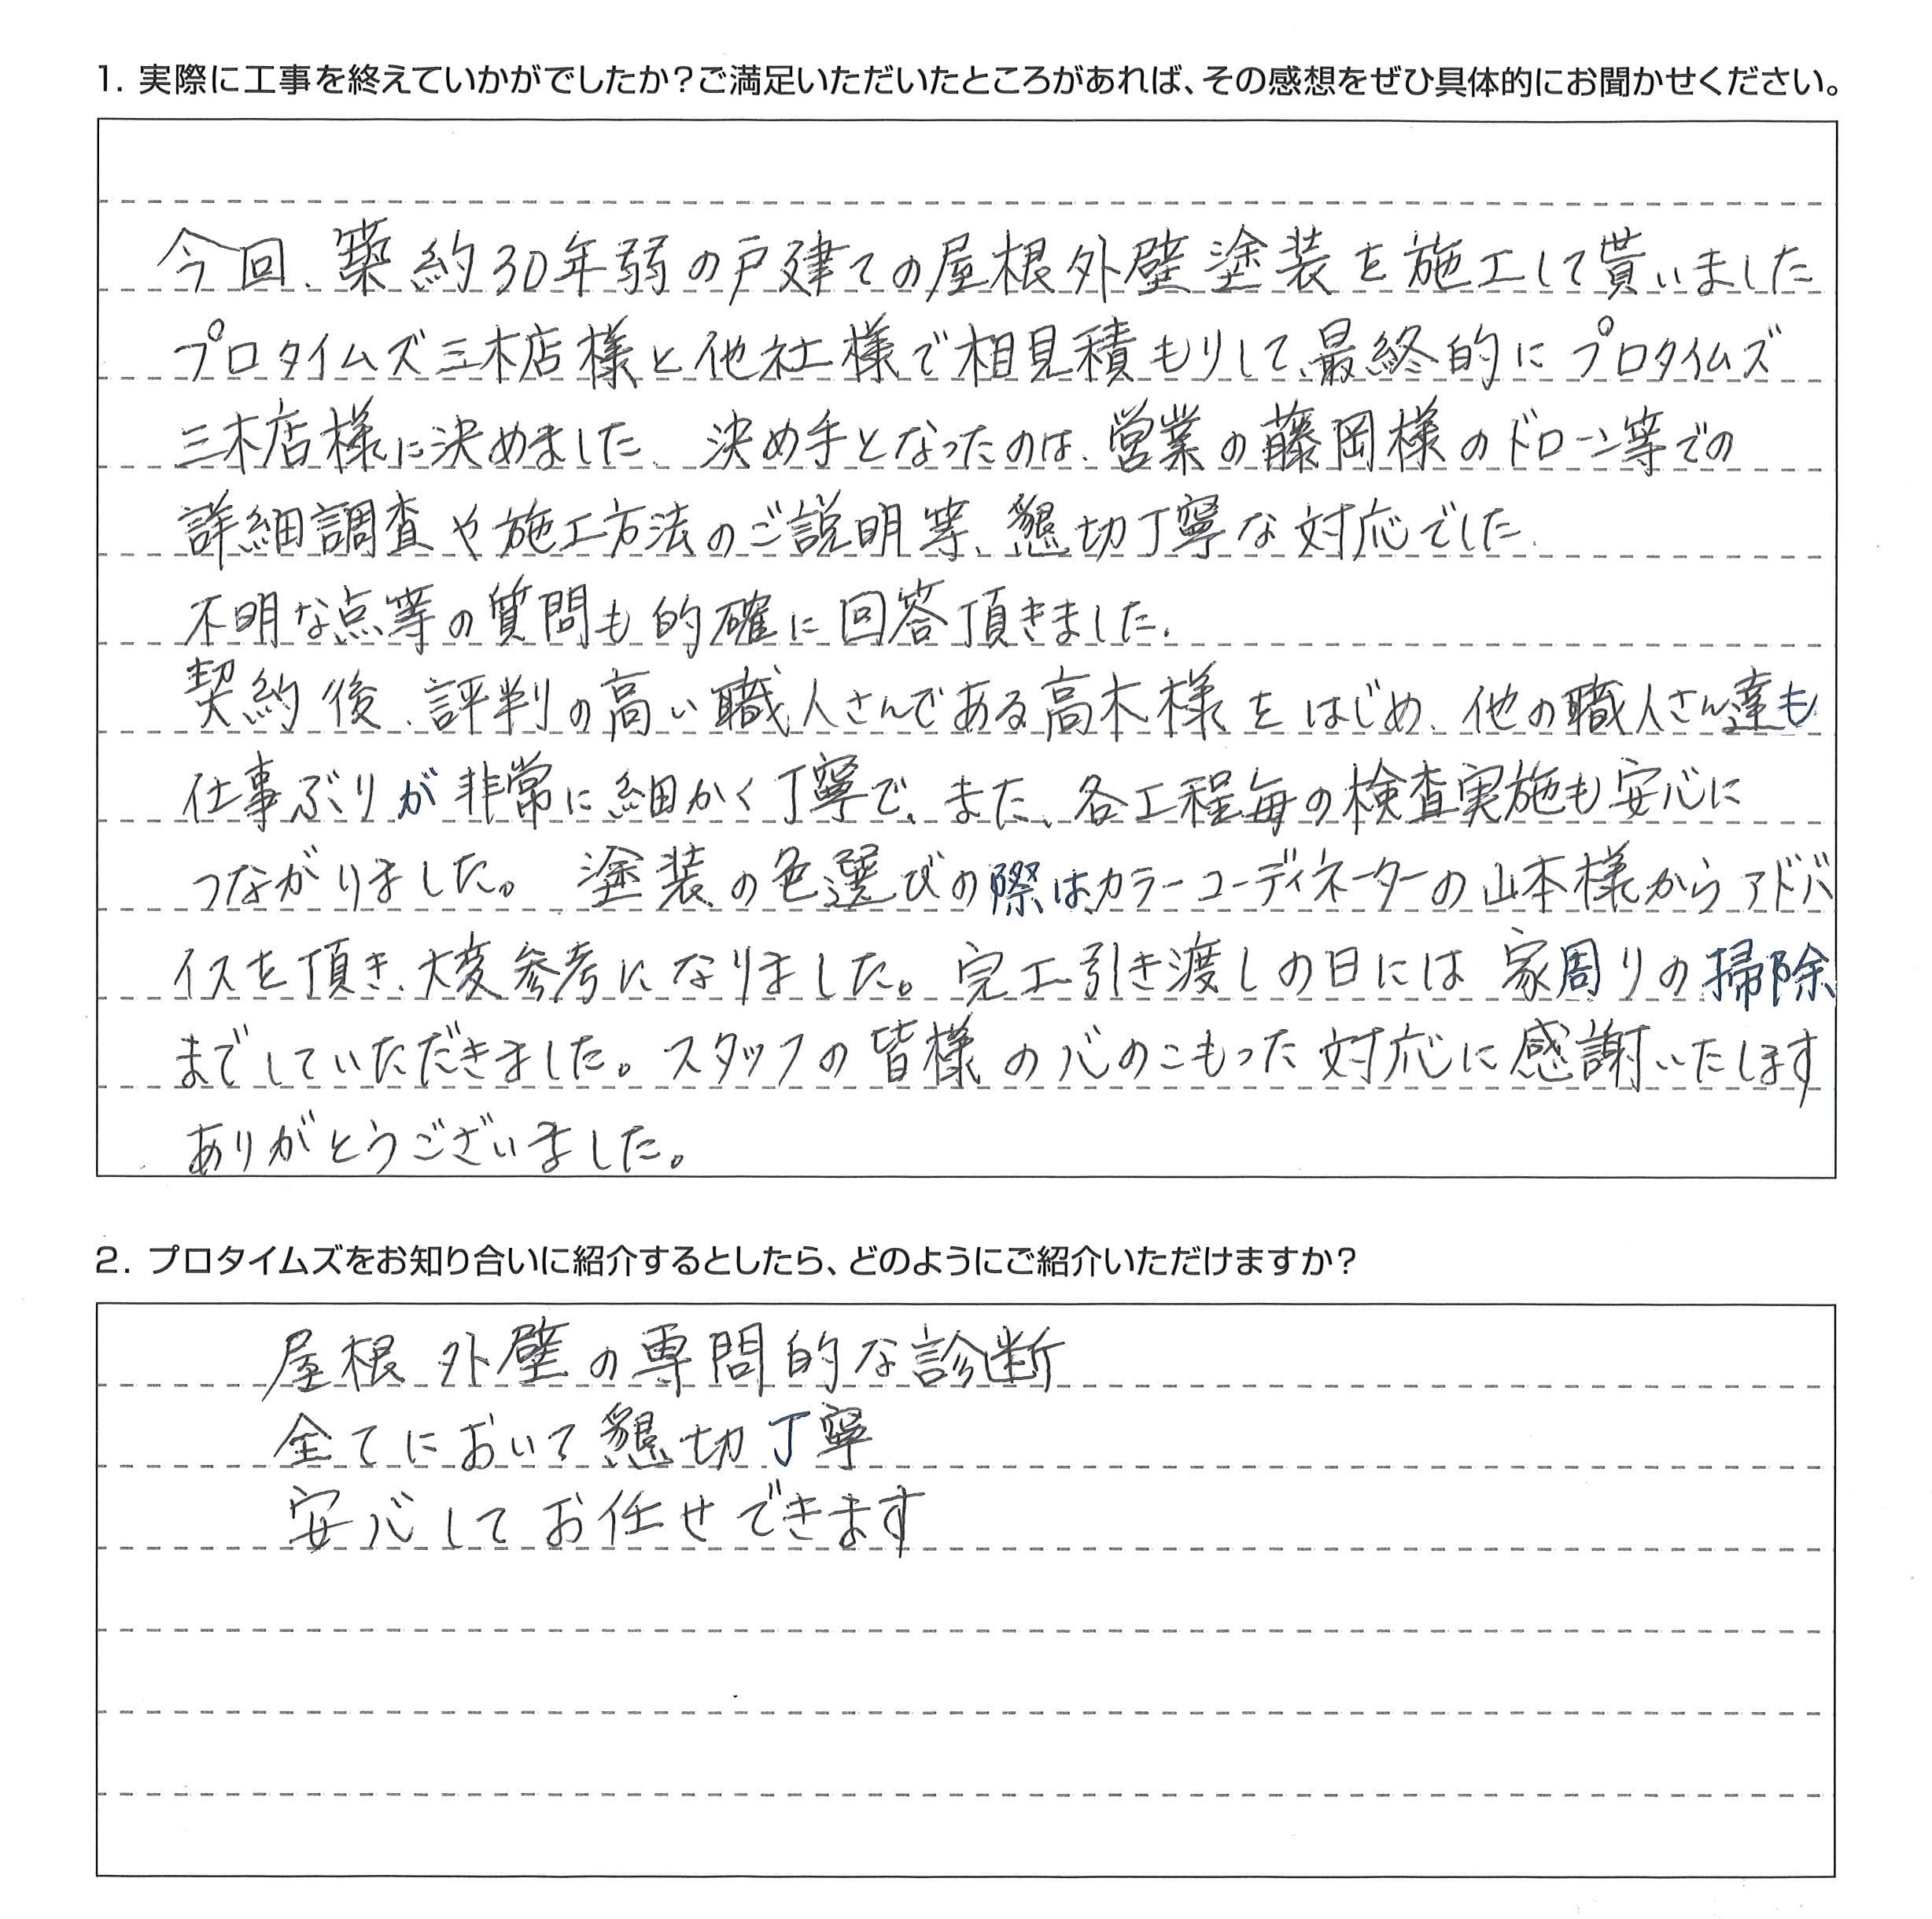 1. 実際に工事を終えていかがでしたか?ご満足いただいたところがあれば、その感想をぜひ具体的にお聞かせください。
今回、築約30年弱の戸建ての屋根外壁塗装を施工して貰いました
プロタイムズ三木店様と他社様で相見積もりして、最終的にプロタイムズ
三木店様に決めました。決め手となったのは、営業の藤岡様のドローン等での
詳細調査や施工方法のご説明等、懇切丁寧な対応でした。
不明な点等の質問も的確に回答頂きました。
契約後、評判の高い職人さんである高木様をはじめ、他の職人さん達も
仕事ぶりが非常に細かく丁寧で、また、各工程毎の検査実施も安心に
つながりました。塗装の色選びの際は、カラーコーディネーターの山本様からアドバ
イスを頂き、大変参考になりました。完工引き渡しの日には家周りの掃除
までしていただきました。スタッフの皆様の心のこもった対応に感謝いたします
ありがとうございました。
2. プロタイムズをお知り合いに紹介するとしたら、どのようにご紹介いただけますか?
屋根外壁の専問的な診断
全てにおいて懇切丁寧
安心してお任せできます